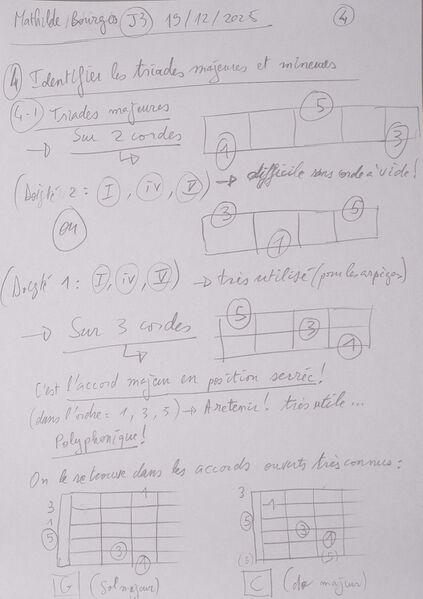 Mathilde Bourges J3 19/12/2025 4
4 Identifier les triades majeures et mineures
4-1 Triades majeures
5
→ Sur 2 cordes
1 3
(Doigté 2 : I, iv, V) → difficile sans corde à vide !
ou
3 5
1
(Doigté 1 : I, iv, V) → très utilisé (pour les arpèges)
→ Sur 3 cordes
5
3
1
C'est l'accord majeur en position serrée !
(dans l'ordre = 1, 3, 5) → A retenir ! très utile...
Polyphonique !
On le retrouve dans les accords ouverts très connus :
3 1
1
5
3
1
3
1
5
3
1
(5) (5)
G (Sol majeur) C (do majeur)